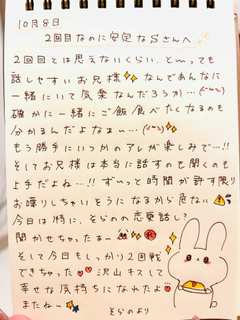 10月8日
2回目なのに安定なSさんへ
2回目とは思えないくらい、とぉっても
話しやすいお兄様✨なんであんなに
一緒にいて気楽なんだろうか…
確かに一緒にご飯食べたくなるのも
分かるんだよなぁ…✨
もう勝手にいつかのアレが楽しみで…!!
そしてお兄様は本当に話すのも聞くのも
上手だよね…!! ずぃっと時間が許す限り
お喋りしちゃいそうになるから危ない⚠
今日は特に、そらのの恋愛話し?
聞かせちゃったぁ
そして今日もしっかり2回戦
できちゃった❤❤沢山キスして
幸せな気持ちになれたよ
またねぃ
そらのより